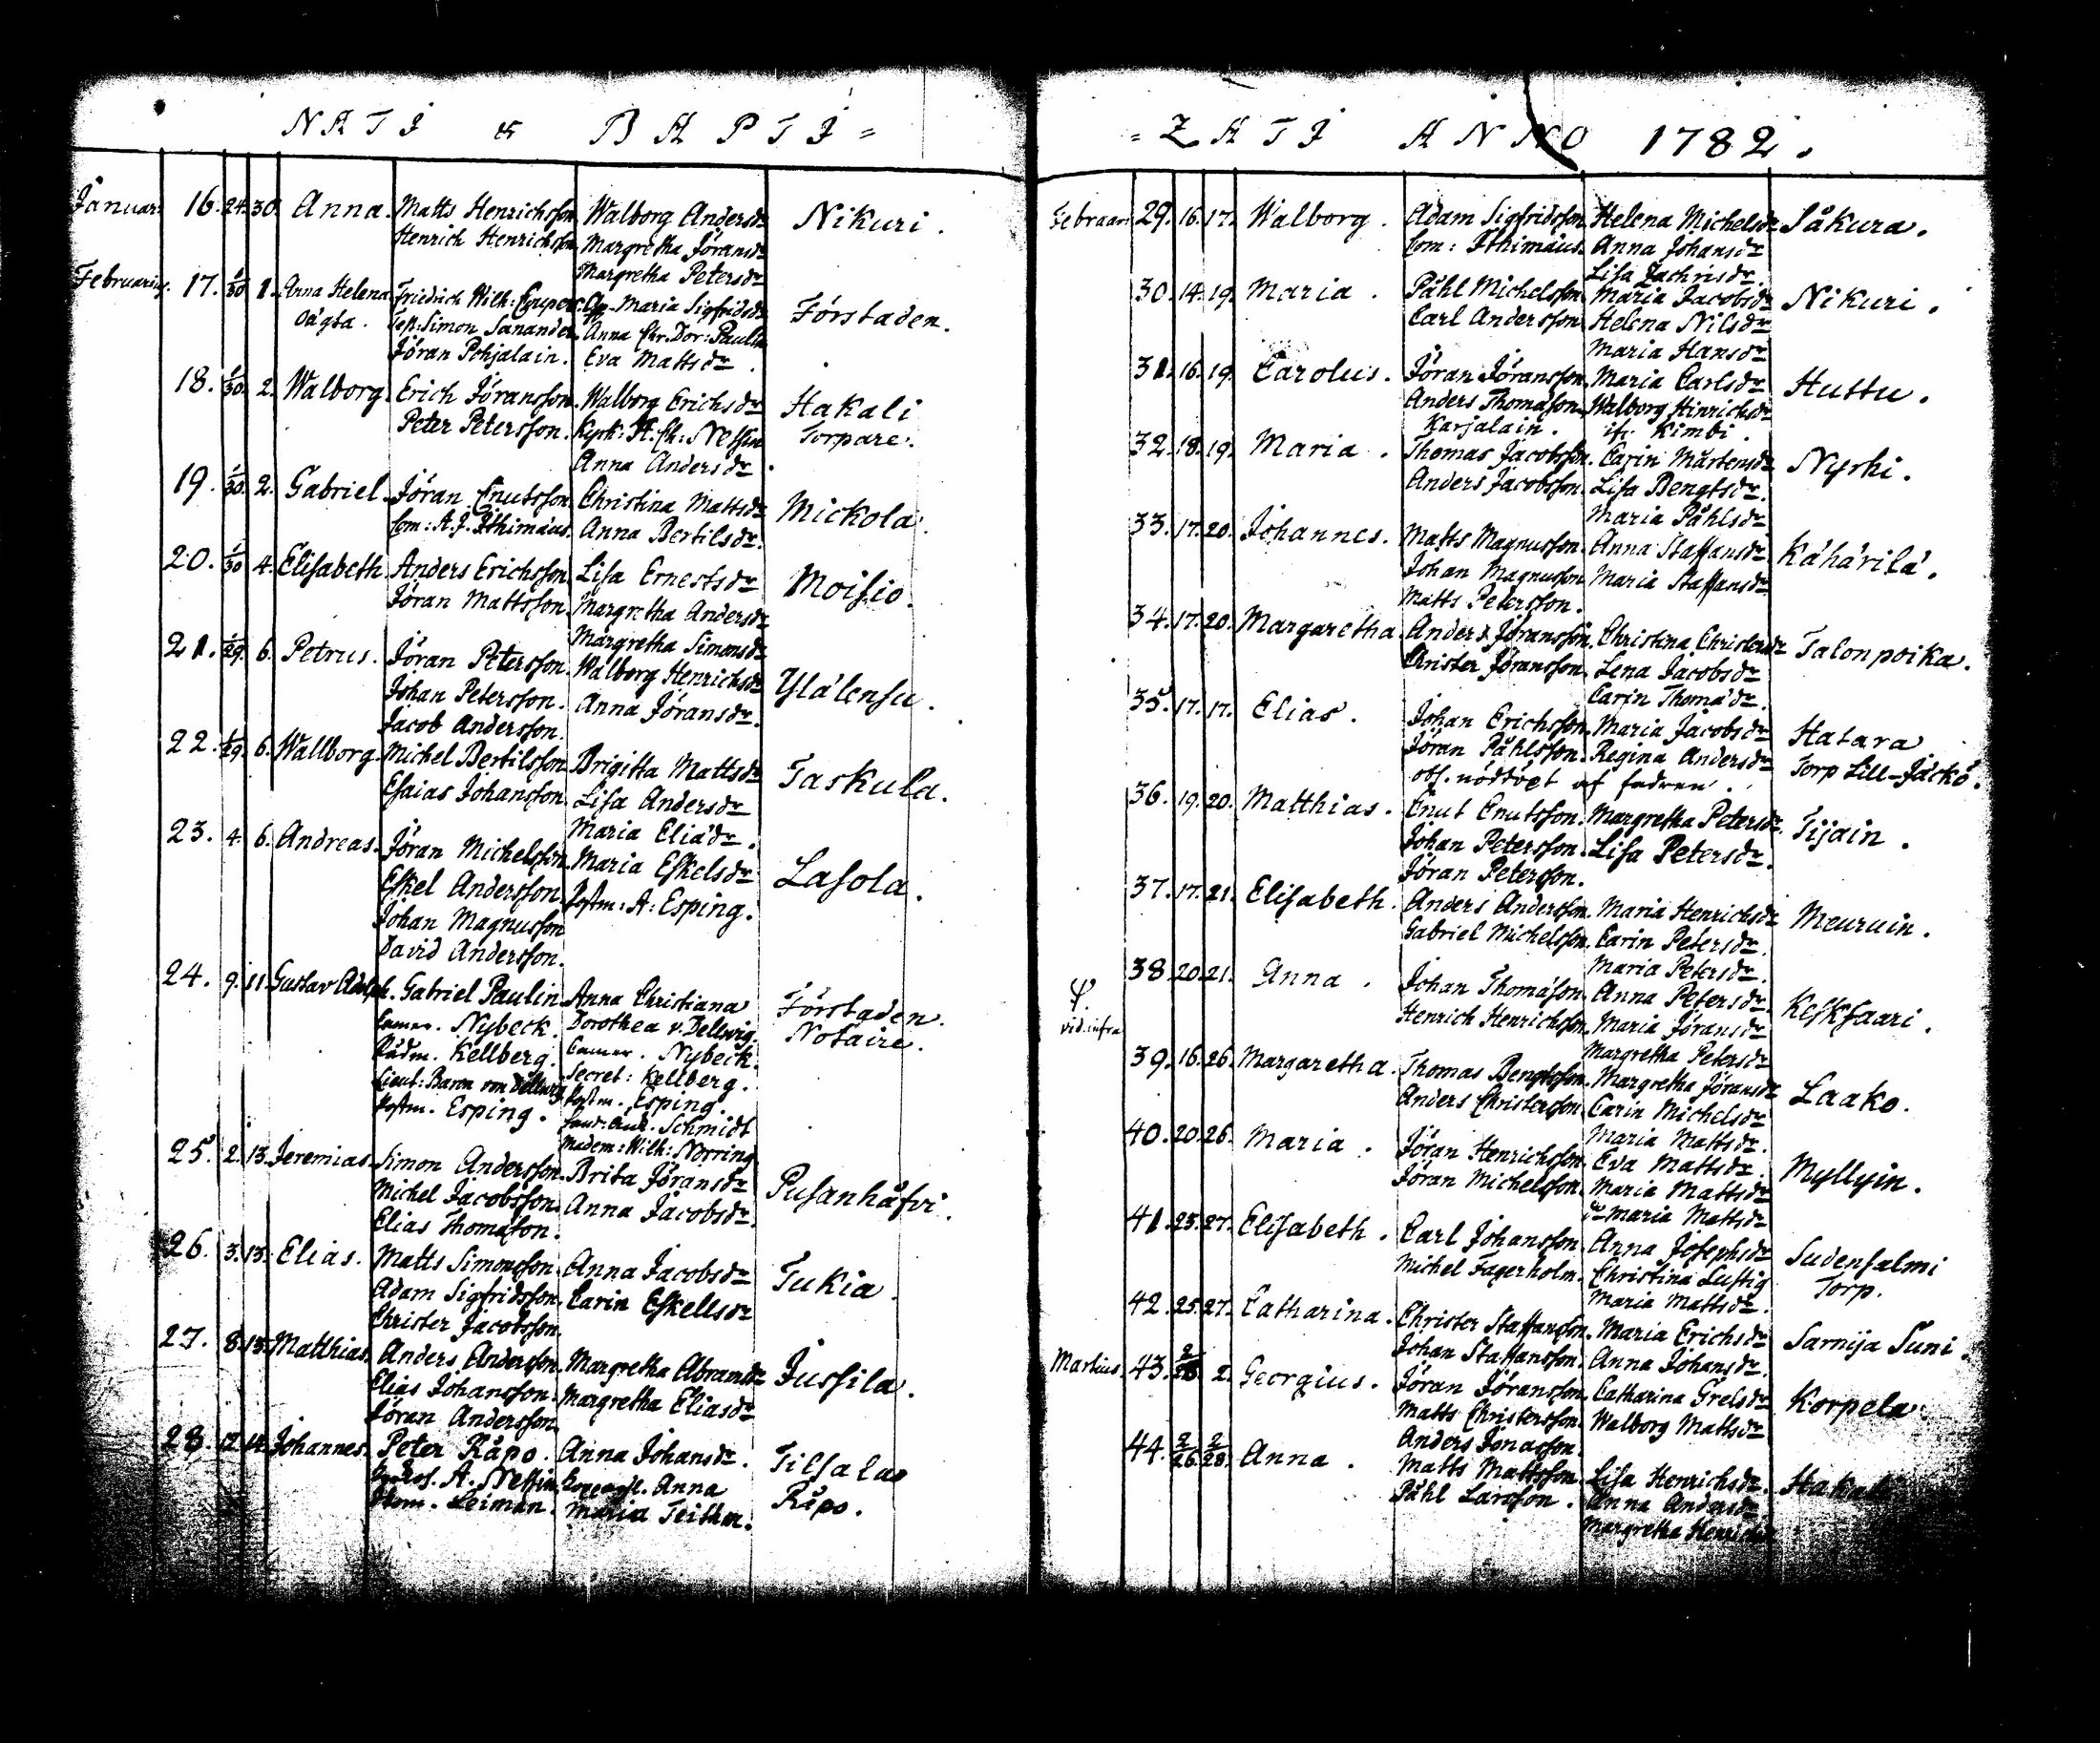 NATI & BAPTI=
Januar: 16. 24. 30. Anna. Matts Henrichsson Walborg Andersdr Nikuri.
Henrich Henrichsson Margretha Jöransdr
Margretha Petersdr
Februarius. 17. 1/30 1. Anna Helena Friedrich Wilh: Maria Sigfridsdr Förstaden.
oägta. Simon Anna Chr. Dor: Paulin
Jöran Pohjalain. Eva Mattsdr.
18. 1/30. 2. Walborg. Erich Jöransson. Walborg Erichsdr Hakali
Peter Petersson. Kyrk: H. Ch: Torpare.
Anna Andersdr.
19. 1/30. 2. Gabriel. Jöran Cnutsson Christina Mattsdr Mickola.
Com: A. J. Ithimäus. Anna Bertilsdr.
20. 1/30 4. Elisabeth Anders Erichsson Lisa Ernestsdr Moisio.
Jöran Mattsson. Margretha Andersdr
Margretha Simonsdr
21. 1/29. 6. Petrus. Jöran Petersson. Walborg Henrichsdr YläLensu.
Johan Petersson. Anna Jöransdr.
Jacob Andersson.
22. 1/29. 6. Wallborg. Michel Bertilsson Brigitta Mattsdr Taskula.
Esaias Johansson. Lisa Andersdr
Maria Eliädr.
23. 4. 6. Andreas. Jöran Michelsson. Maria Eskelsdr Lasola.
Eskel Andersson. Postm: A: Esping.
Johan Magnusson
David Andersson.
24. 9. 11. Gustav Adolph. Gabriel Paulin Anna Christiana Förstaden.
Camer. Nybeck. Dorothea v. Dellwig. Notaire.
Rådm. Kellberg. Camer. Nybeck.
Lieut: Baron von Dellwig Secret: Kellberg.
Postm. Esping. Postm. Esping.
Schmidt
Madem: Wilh: Norring
25. 2. 13. Jeremias. Simon Andersson. Brita Jöransdr Pusanhåfvi.
Michel Jacobsson. Anna Jacobsdr.
Elias Thomasson.
26. 3. 13. Elias. Matts Simonsson. Anna Jacobsdr Tukia.
Adam Sigfridsson. Carin Eskellsdr
Christer Jacobsson.
27. 8. 13. Matthias. Anders Andersson. Margretha Abramsdr Jussila.
Elias Johansson. Margretha Eliasdr
Jöran Andersson
28. 12. 14. Johannes. Peter Räpo. Anna Johansdr. Tilsala
A. Anna Räpo.
Leiman. Maria
=ZATI ANNO 1782.
Februar: 29. 16. 17. Walborg. Adam Sigfridsson. Helena Michelsdr Såkura.
Com: Ithimäus. Anna Johansdr
Lisa Zachrisdr.
30. 14. 19. Maria. Påhl Michelsson Maria Jacobsdr Nikuri.
Carl Andersson Helena Nilsdr
Maria Hansdr
31. 16. 19. Carolus. Jöran Jöransson. Maria Carlsdr Huttu.
Anders Thomasson. Walborg Hinrichsdr
Karjalain. Kimbi.
32. 18. 19. Maria. Thomas Jacobsson. Carin Mårtensdr Nyrhi.
Anders Jacobsson. Lisa Bengtsdr.
Maria Påhlsdr
33. 17. 20. Johannes. Matts Magnusson. Anna Staffansdr Kähärilä.
Johan Magnusson Maria Staffansdr
Matts Petersson.
34. 17. 20. Margaretha. Anders Jöransson. Christina Christersdr Talonpoika.
Christer Jöransson. Lena Jacobsdr
Carin Thomädr.
35. 17. 17. Elias. Johan Erichsson. Maria Jacobsdr Hatara
Jöran Påhlsson. Regina Andersdr Torp Lill-Jäckö.
obs. nöddöpt af fadren.
36. 19. 20. Matthias. Cnut Cnutsson. Margretha Petersdr. Tijain.
Johan Petersson. Lisa Petersdr.
Jöran Petersson.
37. 17. 21. Elisabeth. Anders Andersson. Maria Henrichsdr Meuruin.
Gabriel Michelsson. Carin Petersdr.
Maria Petersdr.
38. 20. 21. Anna. Johan Thomasson. Anna Petersdr. Keskisaari.
vid: infra Henrich Henrichsson. Maria Jöransdr
Margretha Petersdr
39. 16. 26. Margaretha. Thomas Bengtsson. Margretha Jöransdr Laako.
Anders Christersson. Carin Michelsdr
Maria Mattsdr.
40. 20. 26. Maria. Jöran Henrichsson. Eva Mattsdr. Myllyin.
Jöran Michelsson. Maria Mattsdr
Maria Mattsdr
41. 23. 27. Elisabeth. Carl Johansson. Anna Josephsdr Sudensalmi
Michel Fagerholm. Christina Lustig Torp.
Maria Mattsdr.
42. 25. 27. Catharina. Christer Staffansson. Maria Erichsdr Sarvija Suni
Johan Staffansson. Anna Johansdr.
Martius 43. 2/28 2. Georgius. Jöran Jöransson. Catharina Grelsdr Korpela.
Matts Christersson. Walborg Mattsdr
Anders Jönasson.
44. 2/26 2/28. Anna. Matts Mattsson. Lisa Henrichsdr.
Påhl Larsson. Anna Andersdr
Margretha